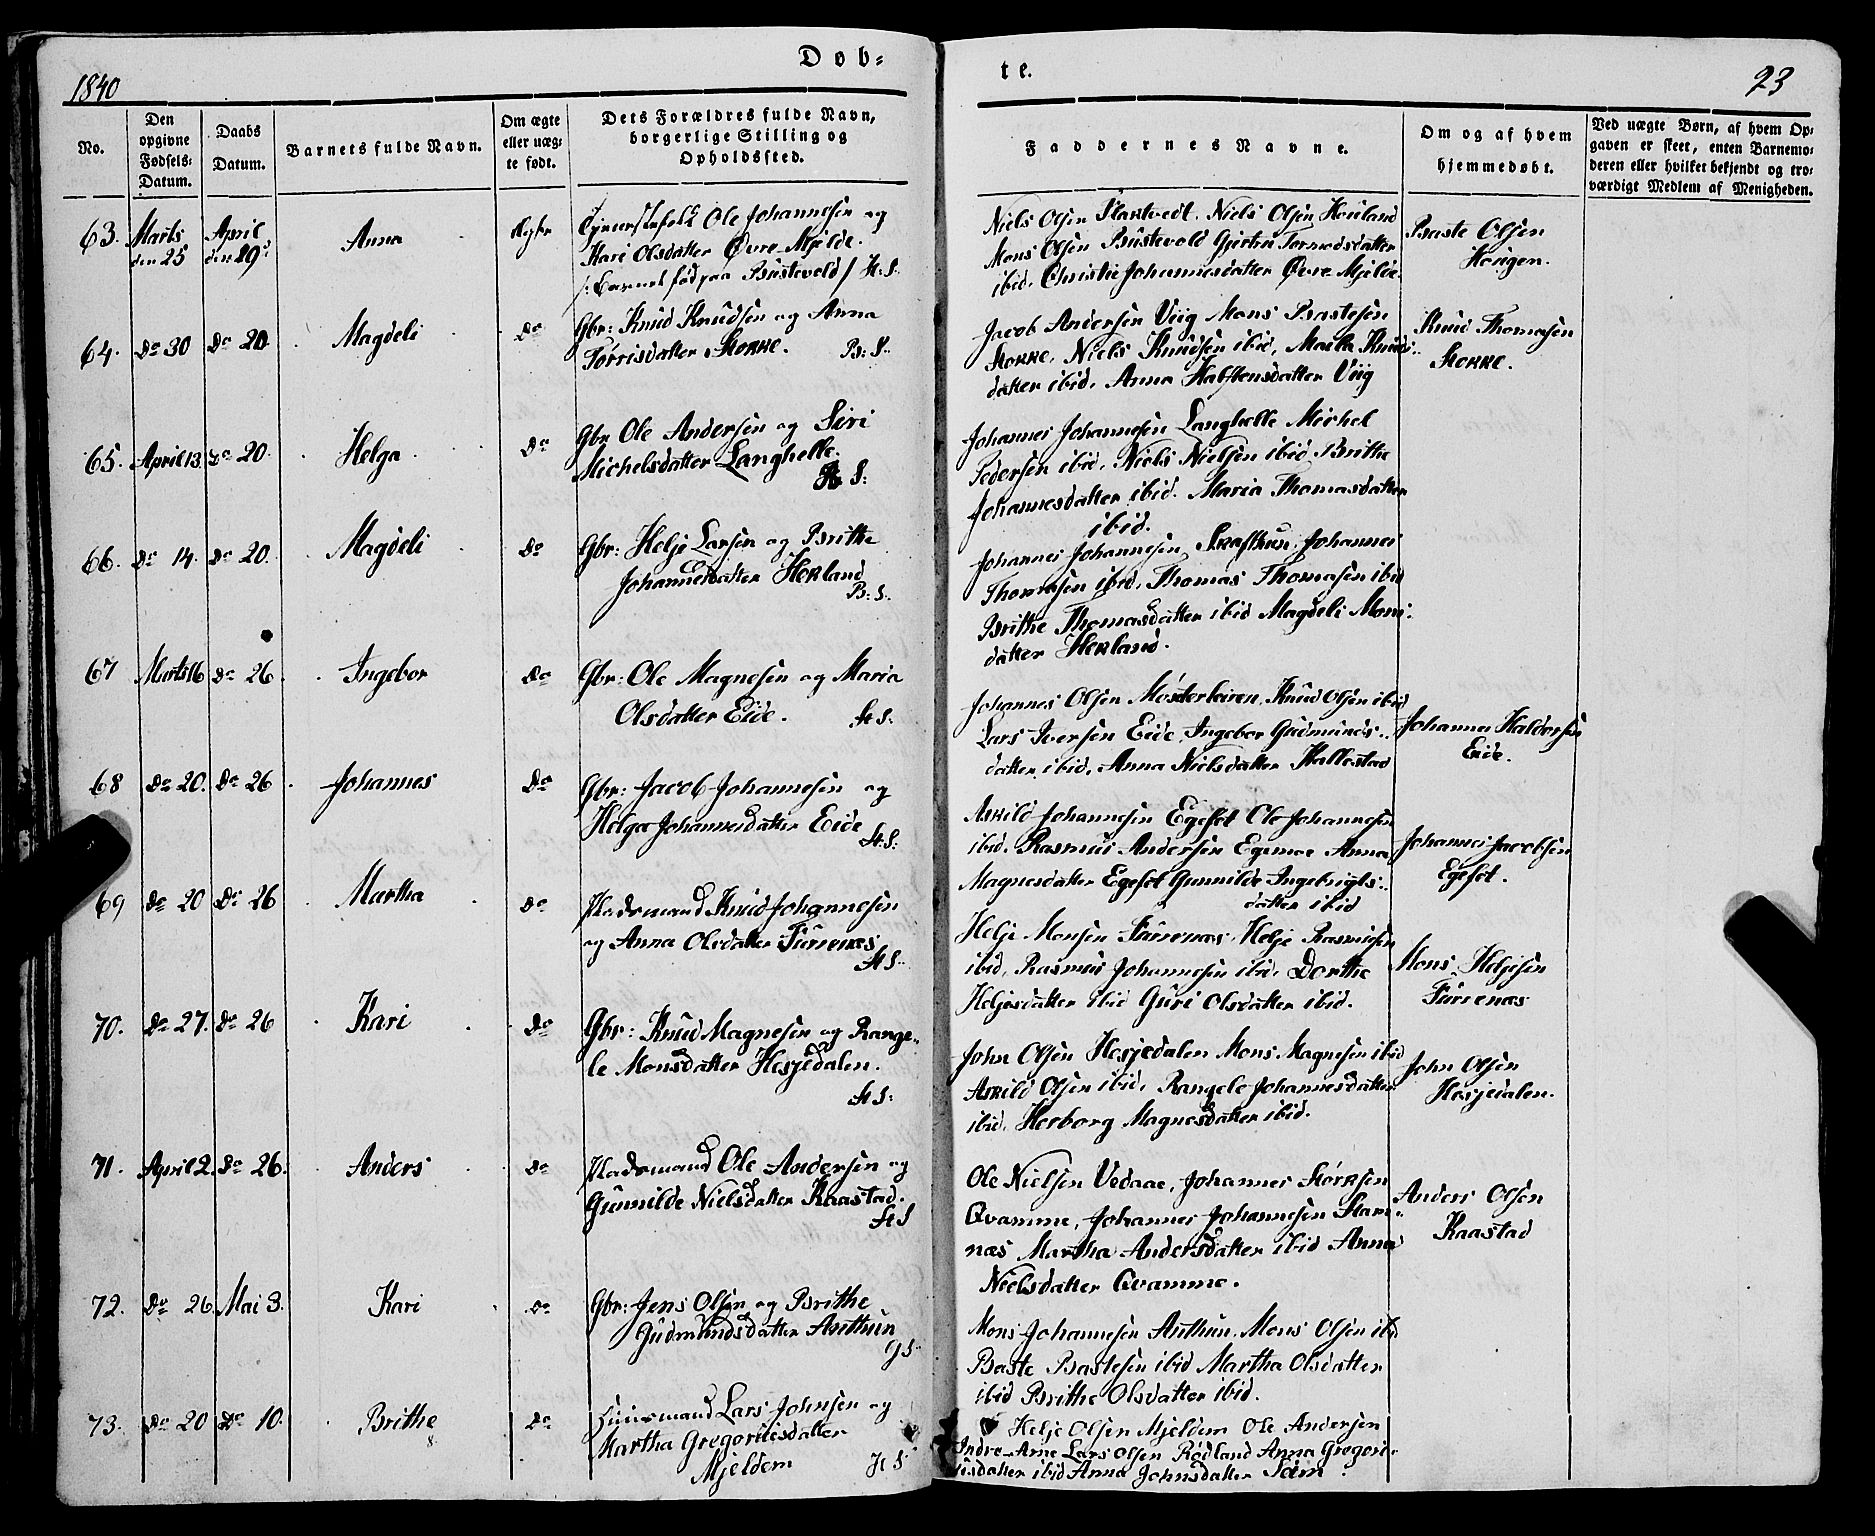 1840
Døb-
te.
23
No.
Den opgivne Fødsels-Datum.
Daabs Datum.
Barnets fulde Navn.
Om ægte eller uægte født.
Dets Forældres fulde Navn, borgerlige Stilling og Opholdssted.
Faddernes Navne.
Om og af hvem hjemmedøbt.
Ved uægte Børn, af hvem Opgaven er skeet, enten Barnemoderen eller hvilket bekjendt og troværdigt Medlem af Menigheden.
63. Marts den 25 April den 19de Anna
Ole Johannesen og
Kari Olsdatter Øvre Mjelde.
/: Barnet fød paa Bustevold / H. S.
Niels Olsen Niels Olsen Houland
Mons Olsen Bustevold Gjertru Tormodsdatter
ibid. Christie Johannesdatter Øvre Mjelde
Baste Olsen
Hougen.
64. Do 30 Do 20 Magdeli Do
Gbr: Knud Knudsen og Anna
Tørrisdatter Stokke. B: S.
Jacob Andersen Viig Mons Bastesen
Stokke, Niels Knudsen ibid, Marta Knuds-
datter ibid, Anna Halstensdatter Viig
Knud Thomasen
Stokke.
65. April 13. Do 20. Helga Do
Gbr Ole Andersen og Siri
Michelsdatter Langhelle.
H S:
Johannes Johannesen Langhelle Michel
Pedersen ibid, Niels Nielsen ibid. Brithe
Johannesdatter ibid. Maria Thomasdatter
ibid.
66. Do 14. Do 20. Magdeli Do
Gbr: Helje Larsen og Brithe
Johannesdatter Herland
B: S.
Johannes Johannesen Skafthun, Johannes
Thomasen ibid, Thomas Thomasen ibid
Brithe Thomasdatter ibid Magdeli Mons-
datter Herland.
67 Marts 16 Do 26. Ingebor Do
Gbr: Ole Magnesen og Maria
Olsdatter Eide. H S.
Johannes Olsen Mosterleiren, Knud Olsen ibid
Lars Iversen Eide, Ingebor Gudmunds-
datter ibid, Anna Nielsdatter Hallestad
Johannes Haldorsen
Eide.
68 Do 20. Do 26 Johannes Do
Gbr: Jacob Johannesen og
Helga Johannesdatter Eide
H S:
Askild Johannesen Egeset Ole Johannesen
ibid. Rasmus Andersen Egemoe Anna
Magnesdatter Egeset Gunnilde Ingebrigts-
datter ibid
Johannes Jacobsen
Egeset.
69 Do 20 Do 26 Martha Do
Pladsmand Knud Johannesen
og Anna Olsdatter Furrenæs
H S.
Helje Monsen Furrenæs, Helje Rasmusen
ibid, Rasmus Johannesen ibid, Dorthe
Heljesdatter ibid Guri Olsdatter ibid.
Mons Heljesen
Furrenæs
70. Do 27. Do 26 Kari Do
Gbr: Knud Magnesen og Range-
le Monsdatter Hesjedalen.
H S:
John Olsen Hesjedalen Mons Magnesen ibid
Askild Olsen ibid, Rangele Johannesdatter
ibid, Herborg Magnesdatter ibid.
John Olsen
Hesjedalen.
71. April 2. Do 26. Anders Do
Pladsmand Ole Andersen og
Gunnilde Nielsdatter Kaastad.
H S
Ole Nielsen Vedaae, Johannes Størksen
Qvamme, Johannes Johannesen Stam-
næs Martha Andersdatter ibid Anna
Nielsdatter Qvamme.
Anders Olsen
Kaastad
72. Do 26. Mai 3. Kari Do
Gbr: Jens Olsen og Brithe
Gudmundsdatter Aasthun
G S.
Mons Johannesen Aasthun, Mons Olsen ibid
Baste Bastesen ibid Martha Olsdatter
ibid Brithe Olsdatter ibid.
73. Do 20 Do 10. Brithe Do
Huusmand Lars Johnsen og
Martha Gregoriusdatter
Mjeldem H S
Helje Olsen Mjeldem Ole Andersen
Indre-Arne Lars Olsen Rødland Anna Gregori-
usdatter ibid Anna Johnsdatter